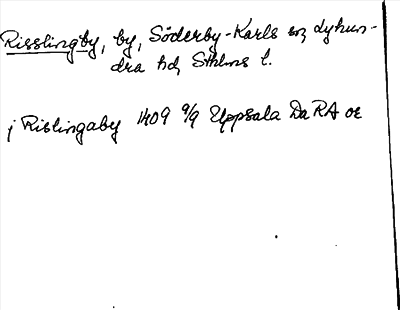 Risslingby, by, Söderby-Karls sn, Lyhun-
dra hd, Sthlms l.
j Rislingaby 1409 9/9 Uppsala Da RA or